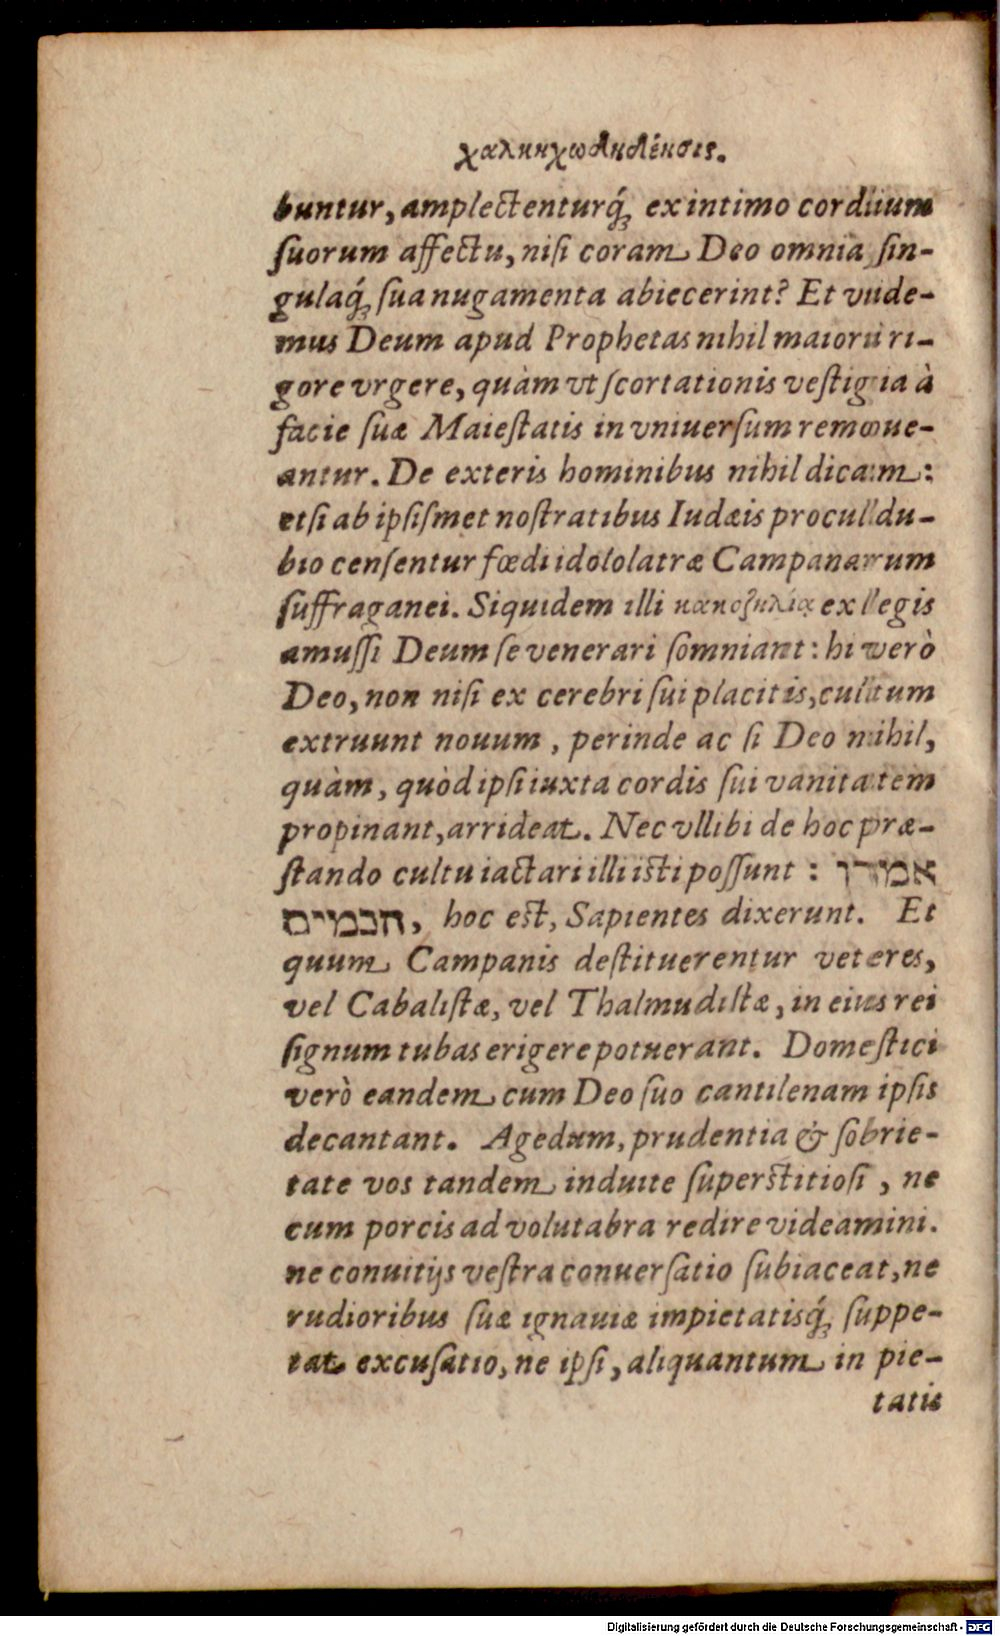 χαλκηχωδικδίκησις.
buntur, amplectenturq́; ex intimo cordium
suorum affectu, nisi coram Deo omnia, sin-
gulaq́; sua nugamenta abiecerint? Et vide-
mus Deum apud Prophetas nihil maiori ri-
gore vrgere, quàm vt scortationis vestigia à
facie suæ Maiestatis in vniuersum remoue-
antur. De exteris hominibus nihil dicam:
etsi ab ipsismet nostratibus Iudæis procul du-
bio censentur fœdi idololatræ Campanarum
suffraganei. Siquidem illi κακοζηλίᾳ ex legis
amussi Deum se venerari somniant: hi verò
Deo, non nisi ex cerebri sui placitis, cultum
extruunt nouum, perinde ac si Deo nihil,
quàm, quòd ipsi iuxta cordis sui vanitatem
propinant, arrideat. Nec vllibi de hoc præ-
stando cultu iactari illi isti possunt: אמרו
חכמים, hoc est, Sapientes dixerunt. Et
quum Campanis destituerentur veteres,
vel Cabalistæ, vel Thalmudistæ, in eius rei
signum tubas erigere potuerant. Domestici
verò eandem cum Deo suo cantilenam ipsis
decantant. Agedum, prudentia & sobrie-
tate vos tandem induite superstitiosi, ne
cum porcis ad volutabra redire videamini.
ne conuitijs vestra conuersatio subiaceat, ne
rudioribus suæ ignauiæ impietatisq́; suppe-
tat excusatio, ne ipsi, aliquantum in pie-
tatis
Digitalisierung gefördert durch die Deutsche Forschungsgemeinschaft - DFG